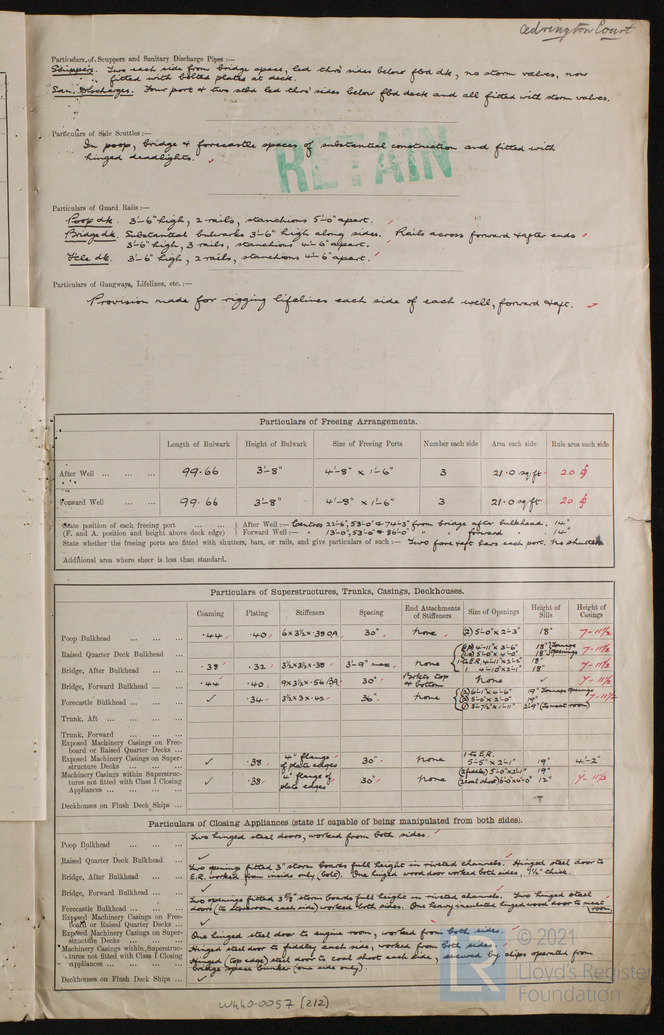 Cedrington Court
Particulars of Scuppers and Sanitary Discharge Pipes :—
Scuppers. Two each side from bridge space, led thro' sides below fbd dk, no storm valves, now
fitted with bolted plates at deck.
San. Discharges. Four port & two stbd led thro' sides below fbd deck and all fitted with storm valves.
Particulars of Side Scuttles :—
In poop, bridge & forecastle spaces of substantial construction and fitted with
hinged deadlights.
RETAIN
Particulars of Guard Rails :—
Poop dk. 3'-6" high, 2 rails, stanchions 5'-0" apart.
Bridge dk. Substantial bulwarks 3'-6" high along sides. Rails across forward & after ends
3'-6" high, 3 rails, stanchions 4'-6" apart.
Fcle dk. 3'-6" high, 2 rails, stanchions 4'-6" apart.
Particulars of Gangways, Lifelines, etc. :—
Provision made for rigging lifelines each side of each well, forward & aft.
Particulars of Freeing Arrangements.
Length of Bulwark Height of Bulwark Size of Freeing Ports Number each side Area each side Rule area each side
After Well ... 99.66 3'-8" 4'-8" x 1'-6" 3 21.0 sq ft 20
Forward Well ... 99.66 3'-8" 4'-8" x 1'-6" 3 21.0 sq ft 20
State position of each freeing port ... After Well :— Centres 22'-6", 53'-0" & 74'-3" from bridge after bulkhead. 14"
(F. and A. position and height above deck edge) Forward Well :— " 13'-0", 53'-6" & 86'-0" " " forward " . 14"
State whether the freeing ports are fitted with shutters, bars, or rails, and give particulars of such :— Two fore & aft bars each port. No shutters
Additional area where sheer is less than standard.
Particulars of Superstructures, Trunks, Casings, Deckhouses.
Coaming Plating Stiffeners Spacing End Attachments of Stiffeners Size of Openings Height of Sills Height of Casings
Poop Bulkhead ... .44 .40 6 x 3½ x .38 OA 30" None (2) 5'-0" x 2'-3" 18" 7'-11½
Raised Quarter Deck Bulkhead ... 4'-11" x 3'-6" 18" Tonnage
5'-0" x 4'-0" 18" openings 7'-11½
Bridge, After Bulkhead ... .38 .32 3½ x 3½ x .38 3'-9" max. None 1 to E.R. 4'-11" x 2'-2" 18"
1 4'-10" x 2'-1" 18" 7'-11½
Bridge, Forward Bulkhead ... .44 .40 9 x 3½ x .56 BA 30" Brkts top & bottom None ✓ 7'-11½
Forecastle Bulkhead ... ✓ .34 3½ x 3 x .42 36" None (2) 6'-1" x 4'-6" 19" Tonnage openings
(2) 5'-0" x 2'-0" 19" 7'-11½
(1) 3'-7½" x 1'-11" 2'-9" (to meat room)
Trunk, Aft ...
Trunk, Forward ...
Exposed Machinery Casings on Freeboard or Raised Quarter Decks ...
Exposed Machinery Casings on Superstructure Decks ... ✓ .38 4" flange of plate edges 30" None 1 to E.R. 5'-5" x 2'-1" 19" 4'-2"
Machinery Casings within Superstructures not fitted with Class I Closing Appliances ... ✓ .38 4" flange of plate edges 30" None (2 fiddley) 5'-0" x 2'-1" 19"
(2 coal shoot) 6'-0" x 4'-0" 12" 7'-11½
Deckhouses on Flush Deck Ships ...
Particulars of Closing Appliances (state if capable of being manipulated from both sides).
Poop Bulkhead ... Two hinged steel doors, worked from both sides.
Raised Quarter Deck Bulkhead ... ✓
Bridge, After Bulkhead ... Two openings fitted 3" storm boards full height in riveted channels. Hinged steel door to
E.R. worked from inside only (bolt). One hinged wood door worked both sides, thick.
Bridge, Forward Bulkhead ... ✓
Forecastle Bulkhead ... Two openings fitted storm boards full height in riveted channels. Two hinged steel
doors (to storeroom each side) worked both sides. One heavy insulated hinged wood door to meat room.
Exposed Machinery Casings on Freeboard or Raised Quarter Decks ... ✓
Exposed Machinery Casings on Superstructure Decks ... One hinged steel door to engine room, worked from both sides.
Machinery Casings within Superstructures not fitted with Class I Closing Appliances ... Hinged steel door to fiddley each side, worked from both sides.
Hinged (top edge) steel door to coal shoot each side, secured by clips operated from
bridge space bunker (one side only).
Deckhouses on Flush Deck Ships ... ✓
© 2021
LR
Lloyd's Register
Foundation
W440-0057 (2/2)